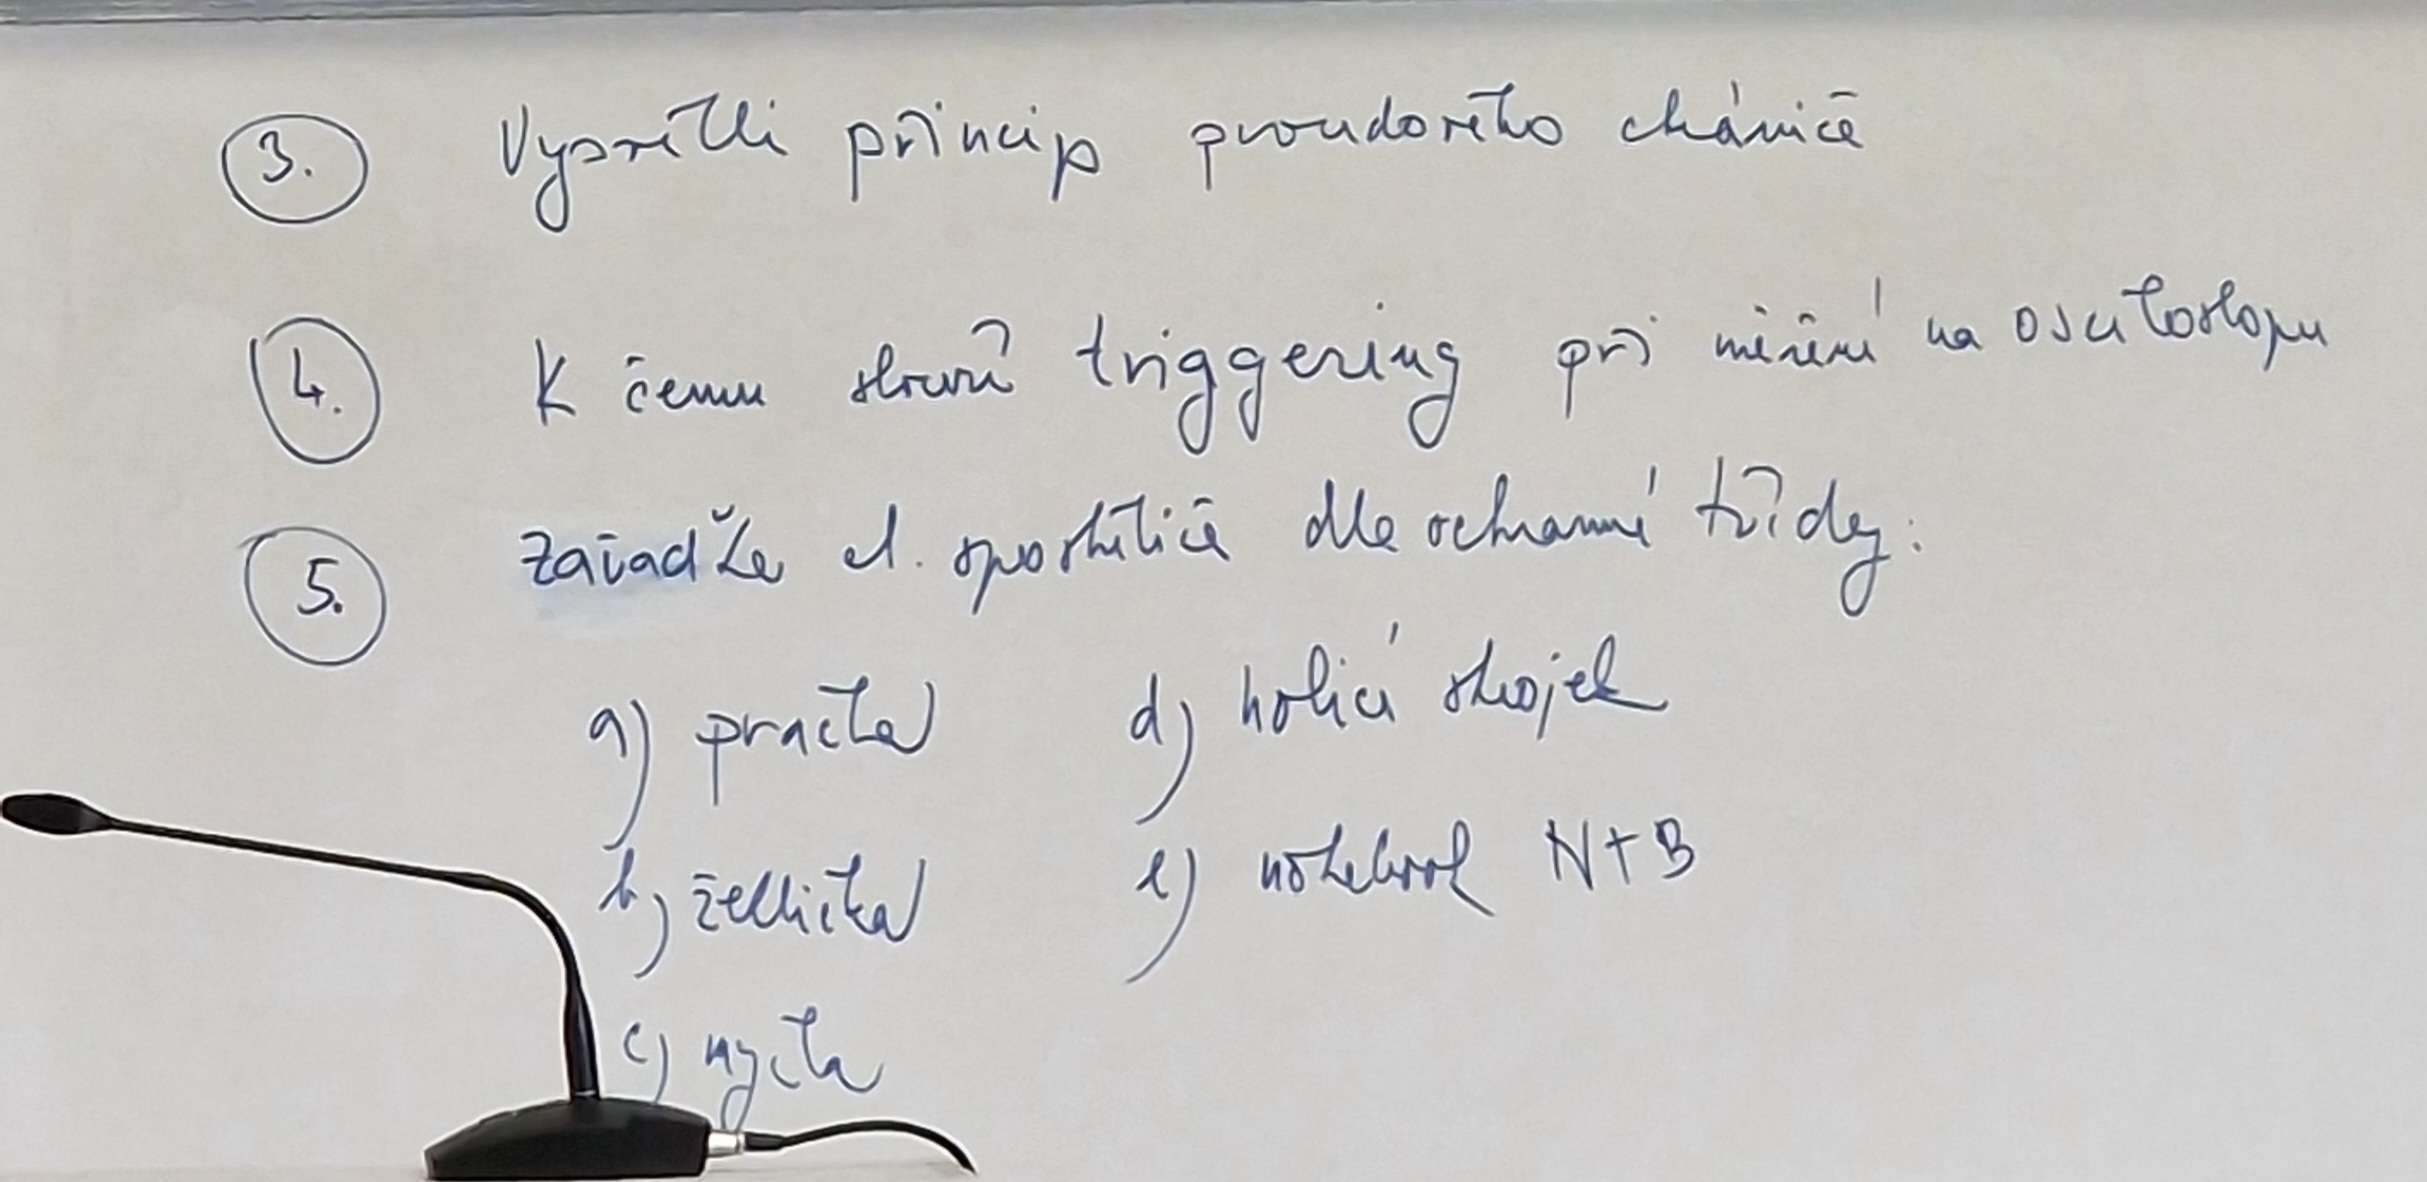 3. Vysvětli princip proudového chrániče
4. K čemu slouží triggering při měření na osciloskopu
5. Zařaďte el. spotřebiče dle ochranné třídy:
a) pračka
b) žehlička
c) myčka
d) holicí strojek
e) notebook N+B